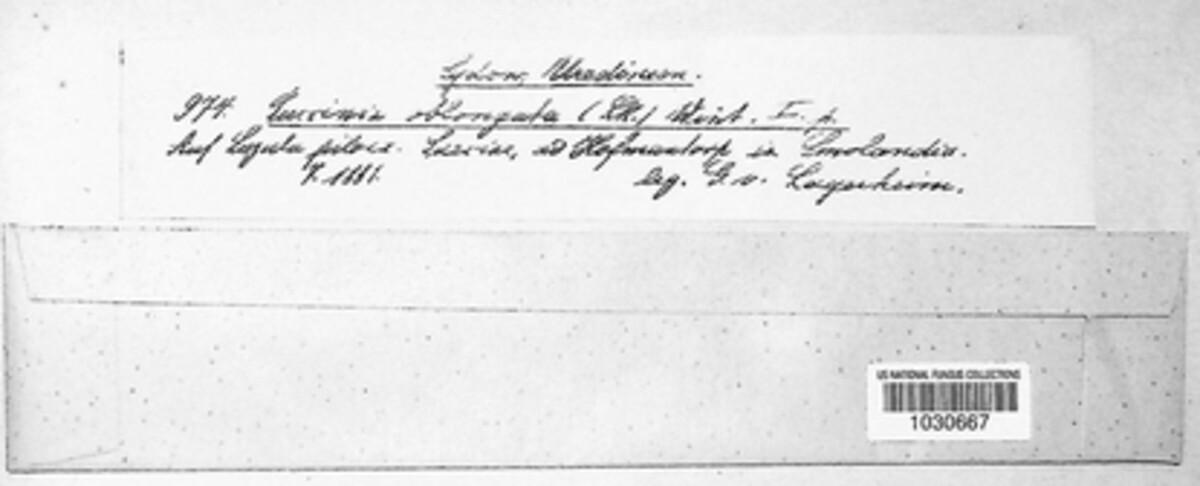 Sydow, Uredineen.
974. Puccinia oblongata (Lk.) Wint. I. p.
Auf Luzula pilosa. Sueciae, ad Hofmantorp in Smolandia.
1881. leg. G. v. Lagerheim.
US NATIONAL FUNGUS COLLECTIONS
1030667